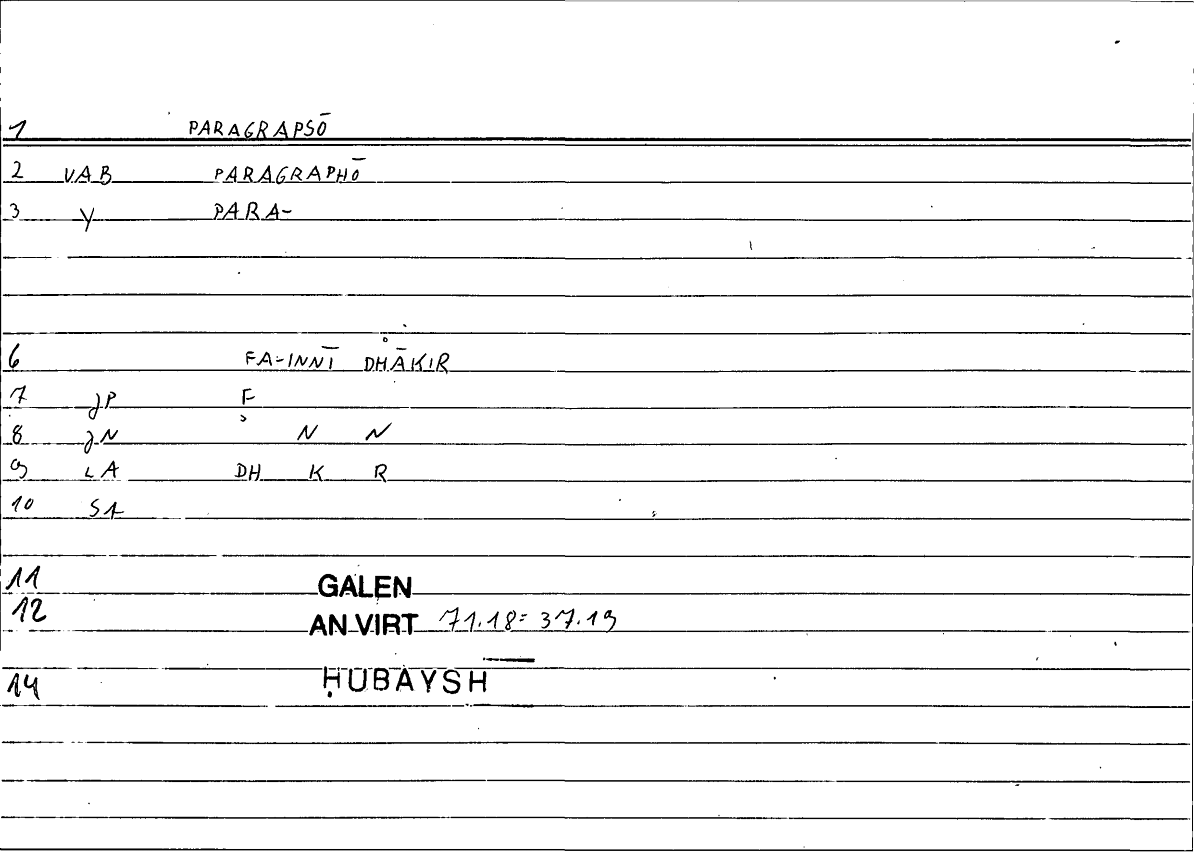 1 PARAGRAPSŌ
2 VAB PARAGRAPHŌ
3 Y PARA-
6 FA-INNĪ DHĀKIR
7 JP F
8 JN ʾ N N
9 LA DH K R
10 SA
11 GALEN
12 AN VIRT 71.18 = 37.19
14 ḤUBAYSH